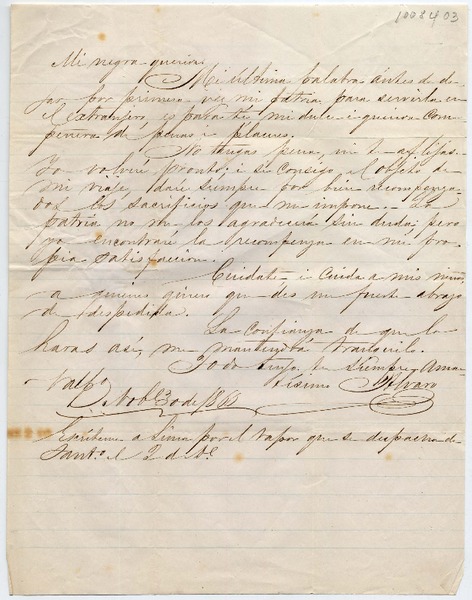 1008403
Mi negra querida
Mi última palabra ántes de de
jar por primera vez mi patria para servirla en
el extranjero, es para ti mi dulce i querida com
pañera de penas i placeres.
No tengas pena, ni te aflijas.
Yo volveré pronto; i si consigo el objeto de
mi viaje, daré siempre por bien recompenza
dos los sacrificios que me impone. La
patria no me los agradecerá sin duda; pero
yo encontraré la recompenza en mi pro
pia satisfaccion.
Cuidate i cuida a mis niños
a quienes quiero que dés un fuerte abrazo
de despedida.
La confianza de que lo
harás así, me mantendrá tranquilo.
Todo tuyo tu siempre Aman
tísimo Alvaro
Valpº
Nobe 30 de
Escribeme a Lima por el vapor que se despacha de
Santº el 2 de